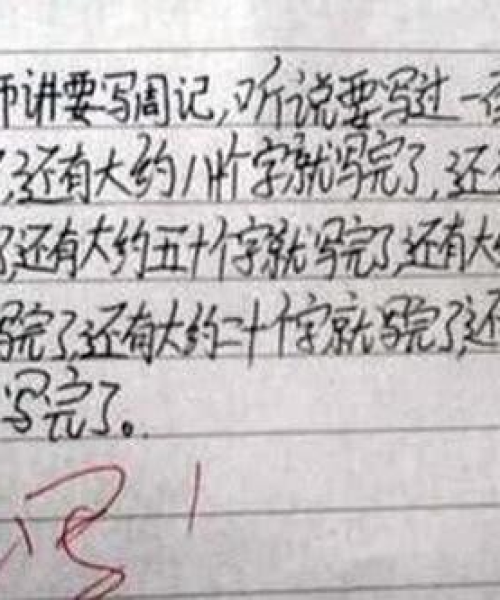 师讲要写周记,听说要写过一
了,还有大约八十个字就写完了,还
了,还有大约五十个字就写完了,还有大
写完了,还有大约二十个字就写完了,还
写完了。